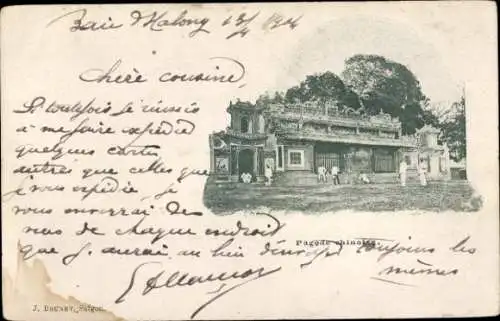 Baie d'Along 13/4 1904
Chère cousine,
Si toutefois je réussis
à me faire expédier
quelques cartes
autres que celles que
je vous expédie, je
vous enverrai des
vues de chaque endroit
que j'aurai au lieu d'envoyer toujours les
mêmes
Pagode chinoise.
J. Brunet, Saigon.